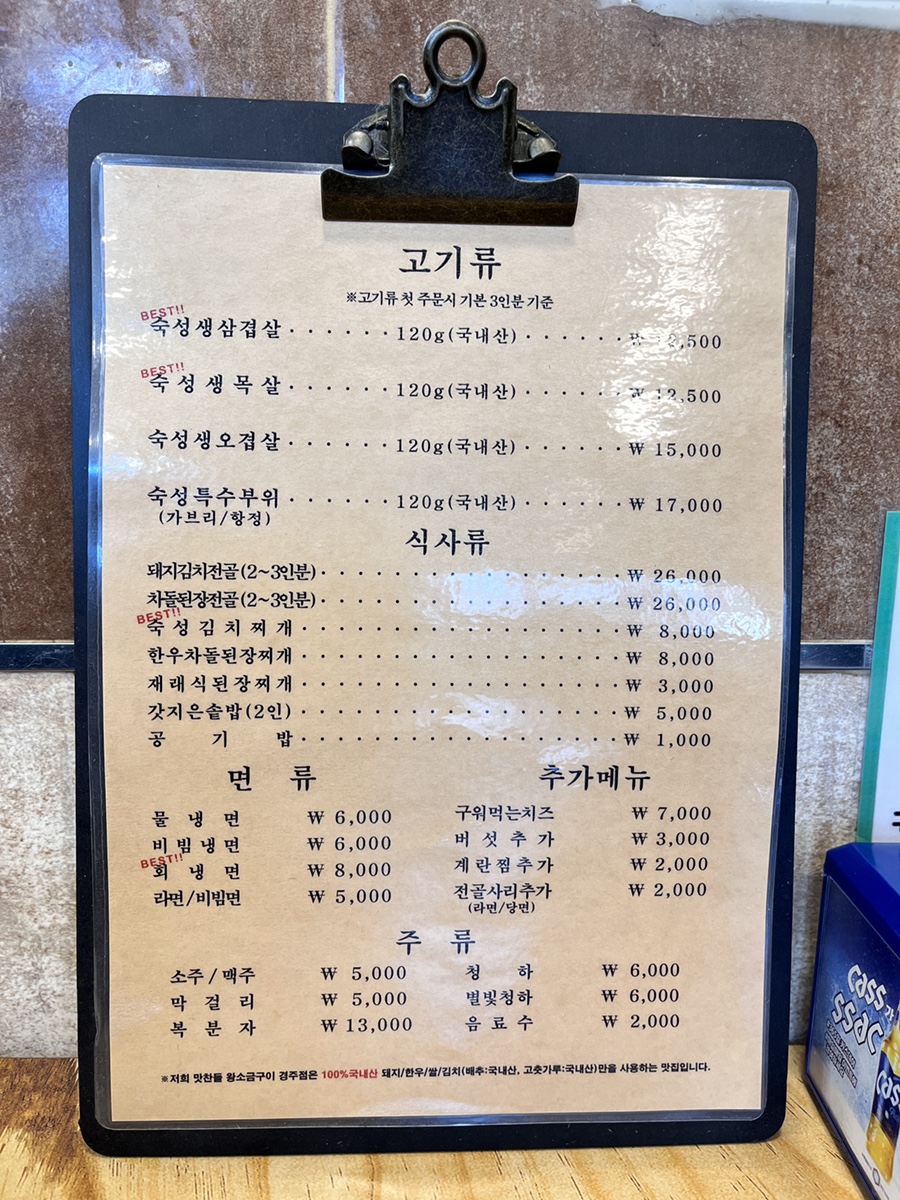 고기류
※고기류 첫 주문시 기본 3인분 기준
BEST!!
숙성생삼겹살 · · · · · · 120g(국내산) · · · · · · ₩
BEST!!
숙성생목살 · · · · · · 120g(국내산) · · · · · · ₩ 12,500
숙성생오겹살 · · · · · · 120g(국내산) · · · · · · ₩ 15,000
숙성특수부위 · · · · · · 120g(국내산) · · · · · · ₩ 17,000
(가브리/항정)
식사류
돼지김치전골(2~3인분) · · · · · · ₩ 26,000
차돌된장전골(2~3인분) · · · · · · ₩ 26,000
BEST!!
숙성김치찌개 · · · · · · ₩ 8,000
한우차돌된장찌개 · · · · · · ₩ 8,000
재래식된장찌개 · · · · · · ₩ 3,000
갓지은솥밥(2인) · · · · · · ₩ 5,000
공기밥 · · · · · · ₩ 1,000
면 류
물냉면 ₩ 6,000
비빔냉면 ₩ 6,000
BEST!!
회냉면 ₩ 8,000
라면/비빔면 ₩ 5,000
추가메뉴
구워먹는치즈 ₩ 7,000
버섯추가 ₩ 3,000
계란찜추가 ₩ 2,000
전골사리추가 ₩ 2,000
(라면/당면)
주 류
소주/맥주 ₩ 5,000
막걸리 ₩ 5,000
복분자 ₩ 13,000
청하 ₩ 6,000
별빛청하 ₩ 6,000
음료수 ₩ 2,000
※저희 맛찬들 왕소금구이 경주점은 100%국내산 돼지/한우/쌀/김치(배추:국내산, 고춧가루:국내산)만을 사용하는 맛집입니다.
cass
ssac
cass